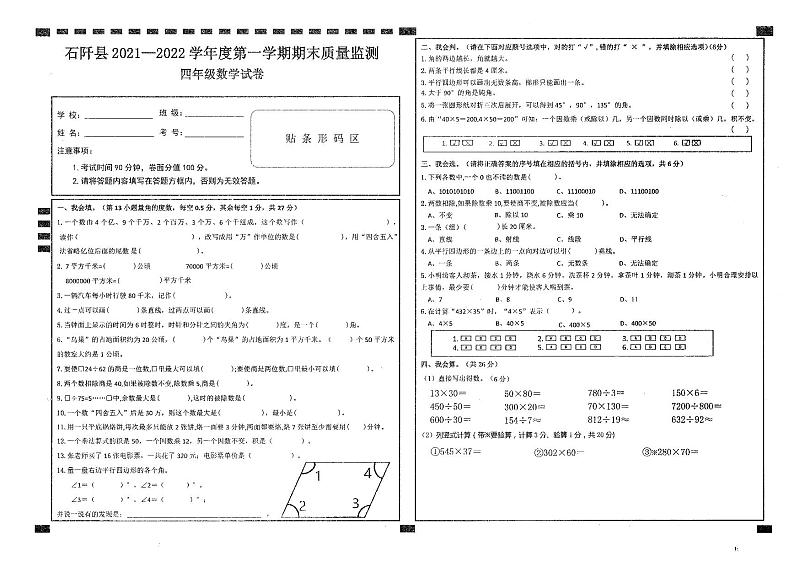 石阡县 2021—2022 学年度第一学期期末质量监测
四年级数学试卷
学 校：
班 级：
姓 名：
考 号：
贴 条 形 码 区
注意事项：
1. 考试时间 90 分钟，卷面分值 100 分。
2. 请将答题内容填写在答题方框内，否则为无效答题。
一、我会填。（第 13 小题量角的度数，每空 0.5 分，其余每空 1 分，共 27 分）
1. 一个数由 4 个亿、9 个千万、2 个百万、3 个万、6 个千组成，这个数写作（ ），
读作（ ），改写成用“万”作单位的数是（ ），用“四舍五入”
法省略亿位后面的尾数是（ ）。
2. 7 平方千米=（ ）公顷 70000 平方米=（ ）公顷
8000000 平方米=（ ）平方千米
3. 一辆汽车每小时行驶 80 千米，记作（ ）。
4. 过一点可以画（ ）条直线，过两点可以画（ ）条直线。
5. 当钟面上显示的时间为 6 时整时，时针和分针之间的夹角为（ ）度，是一个（ ）角。
6. “鸟巢”的占地面积约为 20 公顷，（ ）个“鸟巢”的占地面积为 1 平方千米。（ ）个 50 平方米
的教室大约是 1 公顷。
7. 要使□24÷62 的商是一位数，□里最大可以填（ ）；要使商是两位数，□里最小可以填（ ）。
8. 两个数相除商是 40，如果被除数不变，除数乘 5，商是（ ）。
9. □÷75=5……□中，余数最大是（ ），这时的被除数是（ ）。
10. 一个数“四舍五入”后是 30 万，则这个数最大是（ ），最小是（ ）。
11. 用一只平底锅烙饼，每次最多只能放 2 张饼，烙一面要 3 分钟，两面都要烙，烙 7 张饼至少需要用（ ）分钟。
12. 一个乘法算式的积是 50，一个因数乘 12，另一个因数不变，积是（ ）。
13. 张老师买了 16 张电影票，一共花了 320 元，电影票单价是（ ）。
14. 量一量右边平行四边形的各个角。
∠1=（ ）°、∠2=（ ）°、
∠3=（ ）°、∠4=（ ）°；
并说一说有的发现是：
1
4
2
3
二、我会判。（请在下面对应题号选项中，对的打“√”，错的打“ × ”，并填涂相应选项）（6分）
1. 角的两边越长，角就越大。（ ）
2. 两条平行线长都是 4 厘米。（ ）
3. 平行四边形可以画出无数条高，梯形只能画出一条。（ ）
4. 大于 90°的角是钝角。（ ）
5. 将一张圆形纸对折三次后展开，可以得到 45°，90°，135°的角。（ ）
6. 由“40×5=200,4×50=200”可知：一个因数乘（或除以）几，另一个因数同时除以（或乘）几，积不变。
（ ）
1. √ × 2. √ × 3. √ × 4. √ × 5. √ × 6. √ ×
三、我会选。（请将正确答案的序号填在相应的括号内，并填涂相应的选项，共 6 分）
1. 下列各数中，一个 0 也不读的数是（ ）。
A、1010101010 B、11001100 C、11100010 D、11100100
2. 两数相除，如果除数乘 10，要使商不变，被除数应当（ ）。
A、不变 B、除以 10 C、乘 10 D、无法确定
3. 一条（组）（ ）长 20 厘米。
A、直线 B、射线 C、线段 D、平行线
4. 从平行四边形的一条边上的一点向对边可以引（ ）垂线。
A、一条 B、两条 C、无数条 D、无法确定
5. 小明给客人沏茶，接水 1 分钟，烧水 6 分钟，洗茶杯 2 分钟，拿茶叶 1 分钟，沏茶 1 分钟。小明合理安排以
上事情，最少要（ ）分钟才能使客人喝到茶。
A、7 B、8 C、9 D、11
6. 在计算“432×35”时，“4×5”表示（ ）。
A、4×5 B、40×5 C、400×5 D、400×50
1. A B C D 2. A B C D 3. A B C D
4. A B C D 5. A B C D 6. A B C D
四、我会算。（共 26 分）
（1）直接写出得数。（6 分）
13×30= 50×80= 780÷3= 150×6=
450÷50= 300×20= 70×130= 7200÷800=
600÷30= 154÷7≈ 812÷19≈ 632÷92≈
（2）列竖式计算（带※要验算，计算 3 分、验算 1 分，共 20 分）
①545×37= ②302×60= ③※280×70=